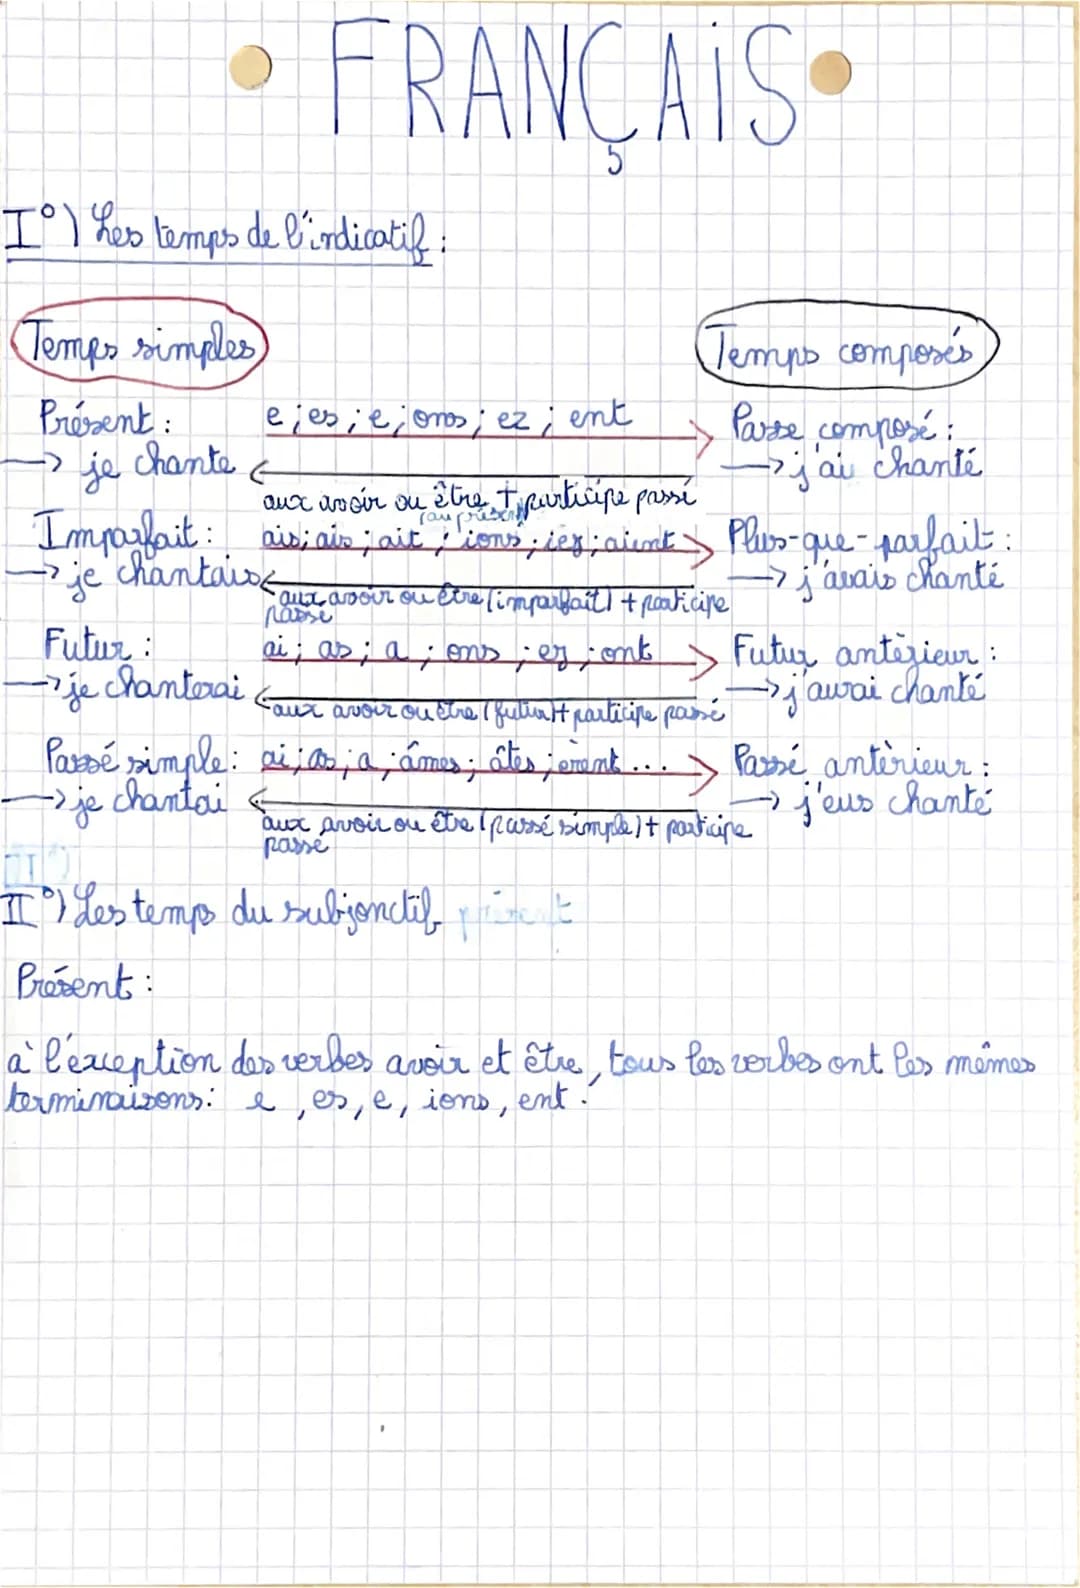 FRANÇAIS
I°) Les temps de l'indicatif :
Temps simples
Temps composés
Présent : e ; es ; e ; ons ; ez ; ent Passe composé :
→ je chante → j'ai chanté
aux avoir ou être + participe passé
(au présent)
Imparfait : ais ; ais ; ait ; ions ; iez ; aient Plus-que-parfait :
→ je chantais → j'avais chanté
aux avoir ou être (imparfait) + participe
passé
Futur : ai ; as ; a ; ons ; ez ; ont Futur antèrieur :
→ je chanterai → j'aurai chanté
aux avoir ou être (futur) + participe passé
Passé simple : ai ; as ; a ; âmes ; âtes ; èrent ... Passé antèrieur :
→ je chantai → j'eus chanté
aux avoir ou être (passé simple) + participe
passé
II°) Les temps du subjonctif présent
Présent :
à l'éxception des verbes avoir et être, tous les verbes ont les mêmes
terminaisons : e , es, e, ions, ent .